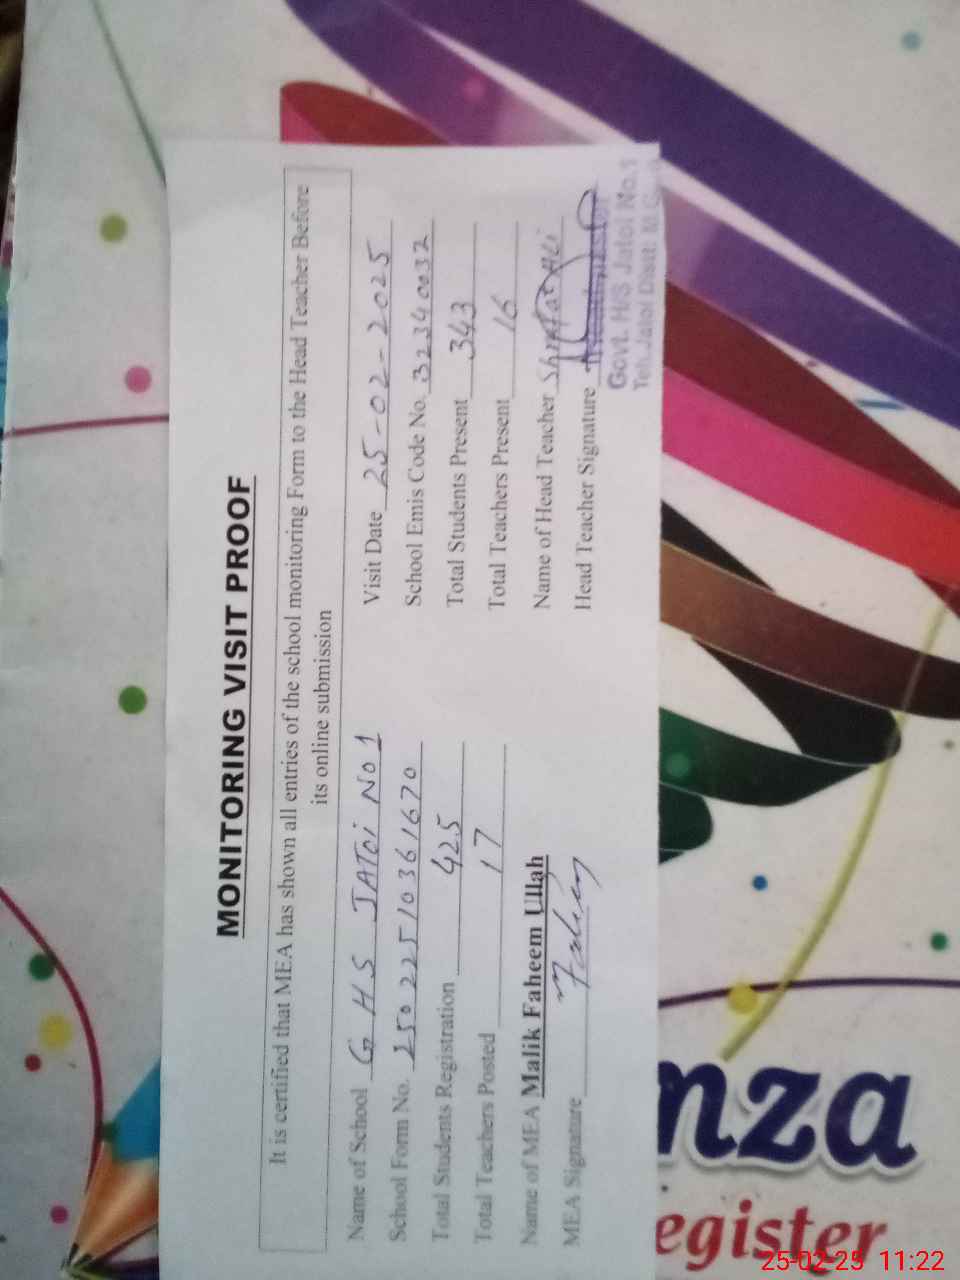 MONITORING VISIT PROOF
It is certified that MEA has shown all entries of the school monitoring Form to the Head Teacher Before
its online submission
Name of School G H S JATOi NO 1
Visit Date 25-02-2025
School Form No. 250 2251036 1670
School Emis Code No. 32340032
Total Students Registration 425
Total Students Present 343
Total Teachers Posted 17
Total Teachers Present 16
Name of MEA Malik Faheem Ullah
Name of Head Teacher Shafqat Ali
MEA Signature Faheem
Head Teacher Signature
Govt. H/S Jatoi No.1
Teh. Jatoi Distt: M.G
nza
egister
25-02-25 11:22